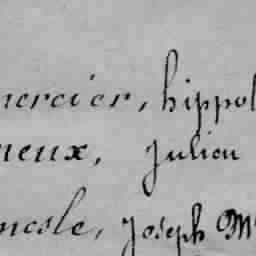 mercier, hippol
neux, Julien
ncsle, Joseph M